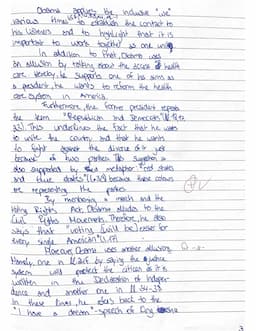 Obama applies the inclusive "we"
various times to establish the contact to
his listeners and to highlight that it is
important to work together as one
In addition to that, Obama uses
an allusion by talking about the health
care he supports one of his aims as
a president, he wants to reform the health
care system in America.
Furthermore, the former president repeats
the term "Republican and Democrats"
This underlines the fact that he wants
to unite the country and that he wants
to fight against the divide of it yet
because of two parties. This suggestion is
also supported by the metaphor "red states
and blue states" because these colours
are representing the parties.
By mentioning a march and the
Voting Rights Act, Obama alludes to the
Civil Rights Movement. Therefore, he also
says that "voting easier for
every single American"
Moreover, Obama uses another allusion.
Namely, one in by saying the justice
system will protect the citizen as it is
written in the Declaration of Indepen-
dence and another one in
In these lines, he refers back to the
"I have a dream"-speech of King
3